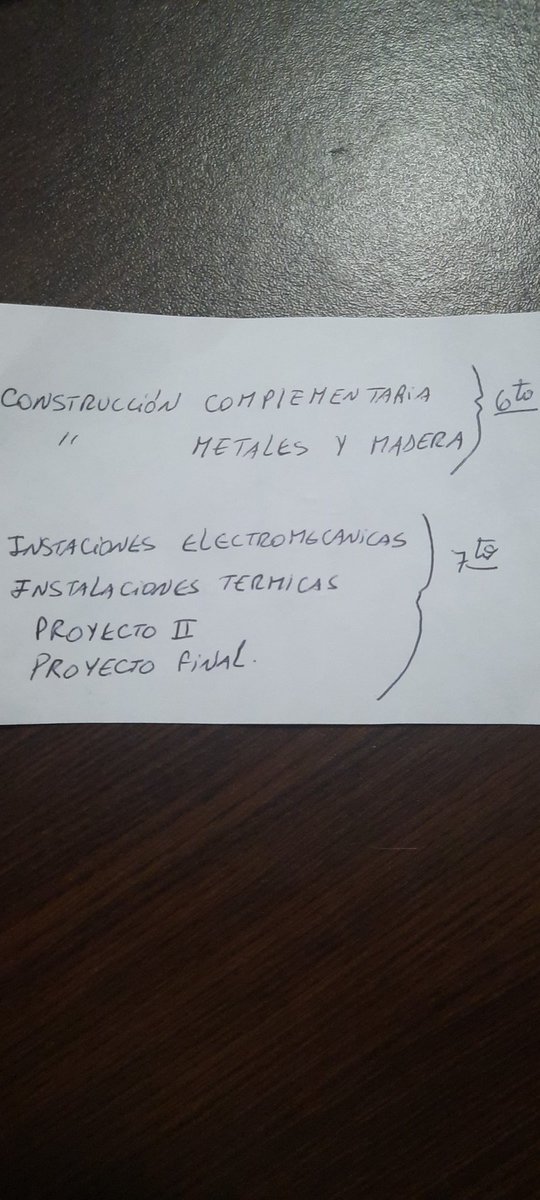 CONSTRUCCIÓN COMPLEMENTARIA } 6to
" METALES Y MADERA
INSTACIONES ELECTROMECANICAS
INSTALACIONES TERMICAS } 7to
PROYECTO II
PROYECTO FINAL.